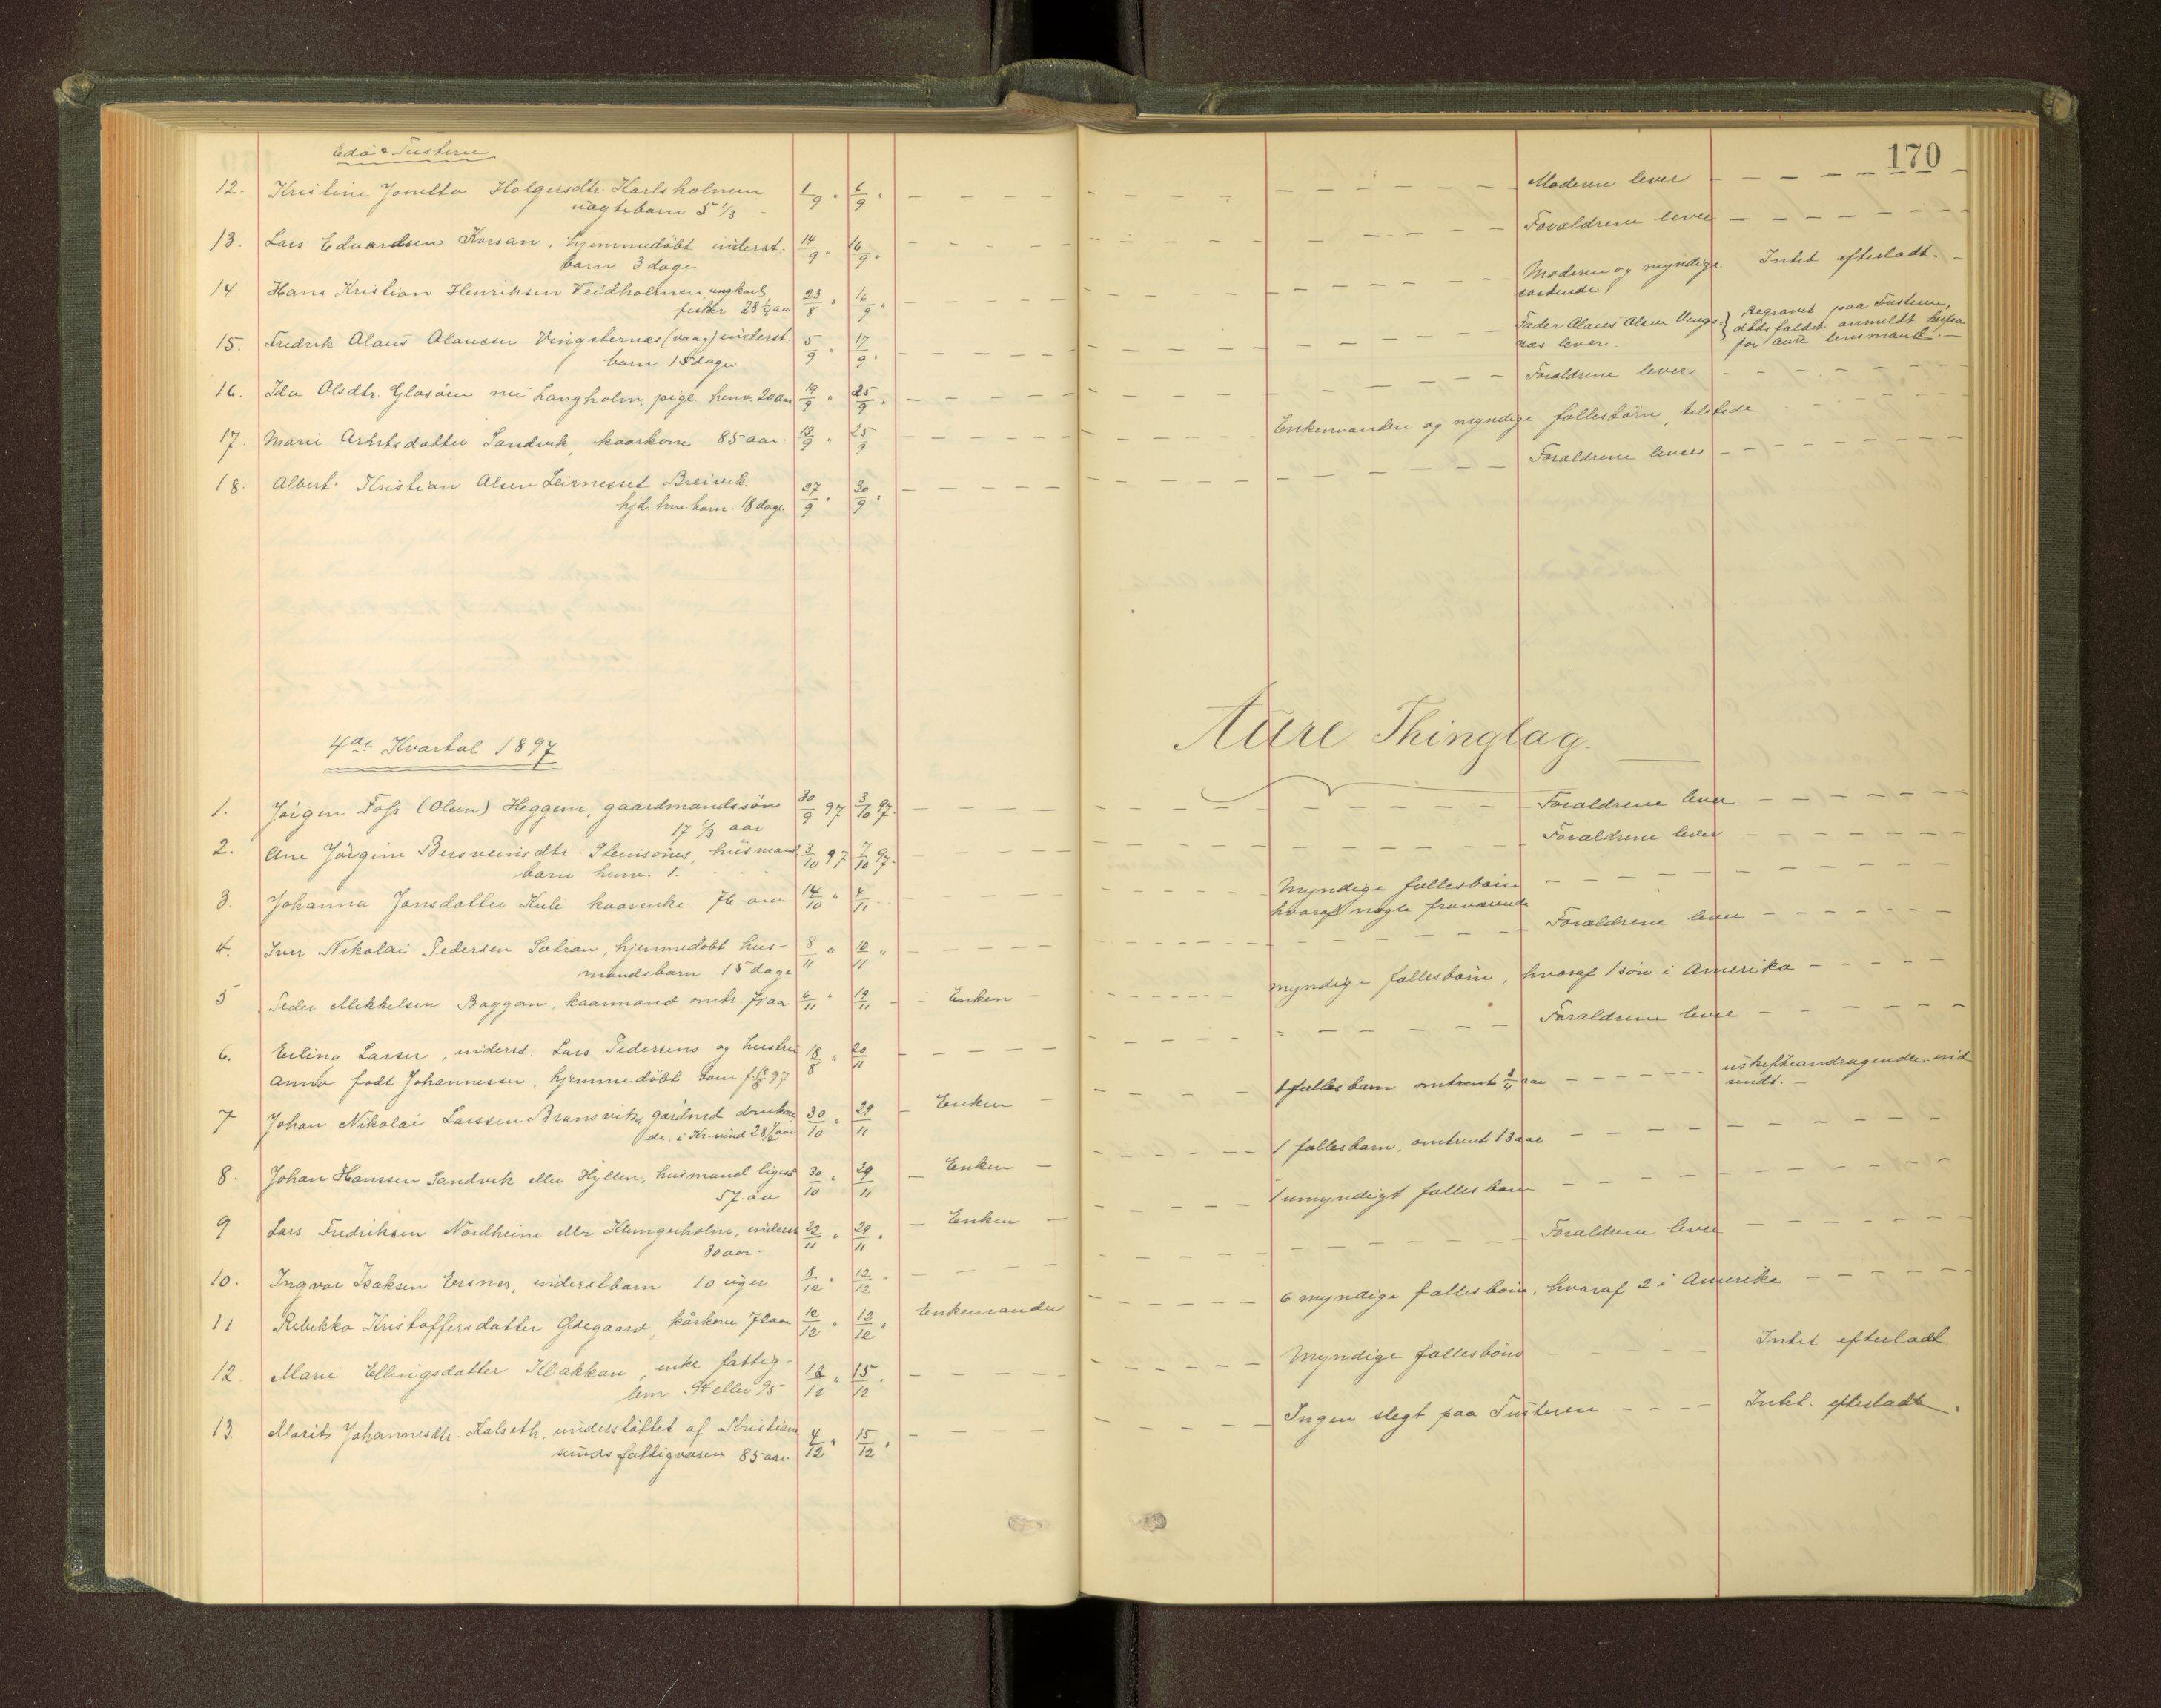 170
Edö & Tustern
12. Kristine Jonetta Holgersdtr. Karlsholmen 1/9 " 6/9 " Moderen lever
uægtebarn 5 1/3
13. Lars Edvardsen Korsan, hjemmedöbt inderst. 14/9 " 16/9 " Forældrene lever
barn 3 dage
14. Hans Kristian Henriksen Veidholmen ungkarl 23/8 " 16/9 " Moderen og myndige Intet efterladt.
fisker 28 1/2 aar søskende
15. Fredrik Alaus Alausen Vingsternes (vaag) inderst. 5/9 17/9 " Fader Alaus Olsen Vings- } Begravet paa Tusteren,
barn 15 dage næs lever. dödsfaldet anmeldt herfra
for Aure lensmand.
16. Ida Olsdtr. Glasöen nu Langholm, pige henv. 20 aar 19/9 " 25/9 " Forældrene lever
17. Marie Arntsdatter Sandvik, kaarkone 85 aar. 18/9 " 25/9 Enkemanden og myndige fællesbörn, tilstede
18. Albert Kristian Alsen Leirneset Breivik. 27/9 " 30/9 " Forældrene lever
hjd. hm. barn. 18 dage
4de Kvartal 1897
Aure Thinglag.
1. Jörgen Foss (Olsen) Heggem, gaardmandssön 30/9 97 3/10 97. Forældrene lever
17 1/3 aar
2. Ane Jörgine Bersveinsdtr. Stensönes, husmand 3/10 97 7/10 97. Forældrene lever
barn henv. 1.
3. Johanna Jonsdatter Kuli kaarenke 76 aar 14/10 " 4/11 Myndige fællesbörn
hvoraf nogle fraværende
4. Iver Nikolai Pedersen Sætran, hjemmedöbt hus- 8/11 " 10/11 " Forældrene lever
mandsbarn 15 dage
5 Peder Mikkelsen Baggan, kaarmand omtr. 75 aar 6/11 " 19/11 Enken myndige fællesbörn, hvoraf 1 sön i Amerika
6. Erling Larsen, inderst. Lars Pedersens og hustru 18/8 " 20/11 Forældrene lever
Anna födt Johannessen, hjemmedöbt barn f. 97
7 Johan Nikolai Larssen Bransvik, gårdmd druknede 30/10 " 29/11 Enken 1 fælles barn omtrent 3/4 aar uskifteandragende ind
i Kr.sund 28 1/2 aar sendt.
8. Johan Hanssen Sandvik eller Hyllen, husmand ligeså 30/10 " 29/11 Enken 1 fælles barn, omtrent 13 aar
57. aar
9 Lars Fredriksen Nordheim eller Klungerholm, inderst 22/11 " 29/11 " Enken 1 umyndigt fælles barn
30 aar
10. Ingvar Isaksen Ersnes, inderstbarn 10 uger 8/12 " 12/12 " Forældrene lever
11 Rebekka Kristoffersdatter Ødegaard, kårkone 72 aar 10/12 " 12/12 " Enkemanden 6 myndige fællesbörn, hvoraf 2 i Amerika
12. Marie Ellingsdatter Klakkan, enke fattig- 12/12 " 15/12 " Myndige fællesbörn Intet efterladt.
lem 94 eller 95
13. Marit Johannesdtr. Kalseth, understöttet af Kristian 4/12 " 15/12 " Ingen slegt paa Tusteren Intet efterladt.
sunds fattigvæsen 85 aar